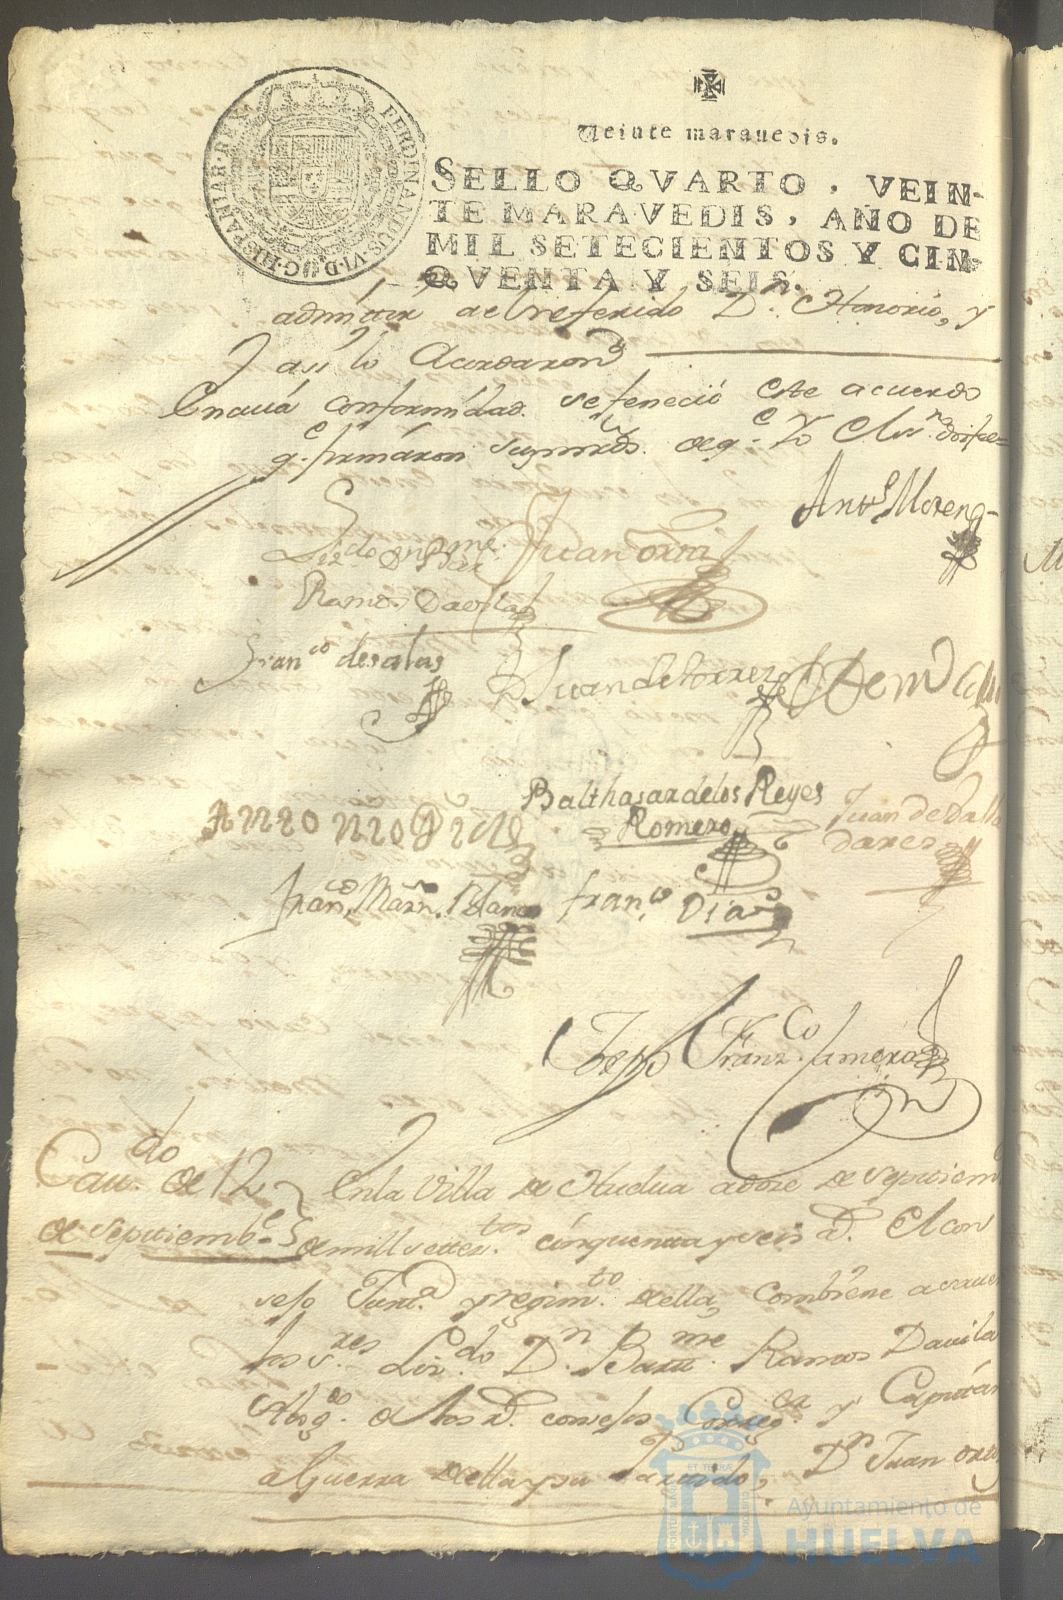 FERDINANDUS·VI·D·G·HISPANIAR·REX
Veinte marauedis.
SELLO QVARTO, VEIN-
TE MARAVEDIS, AÑO DE
MIL SETECIENTOS Y CIN-
QVENTA Y SEIS.
admitir al referido Dn. Honorio, y
asi lo Acordaron
conformidad se feneció este acuerdo
qe. firmáron sus mrds. de qe. Yo el
Anto Moreno
Lizdo Dn Bme. Juan
Ramos Davila
Franco de salas
D Juan de torrez
Balthasar de los Reyes
Romero
Juan de Valla
dares
Franco Marn. Blanco
franco Dias
Franzco.
Cavdo. de 12
de septiembe.
En la Villa de Huelva a doze de septiem
de mill seteztos cinquenta y seis as. El con
sejo Justa. y regimto. della, combiene a saver
los sres. Lizdo Dn. Bartme. Ramos Davila
Abogdo. de los Rs. consejos Corregor y Capitán
a Guerra della y su Partido, Dn Juan
Ayuntamiento de
HUELVA